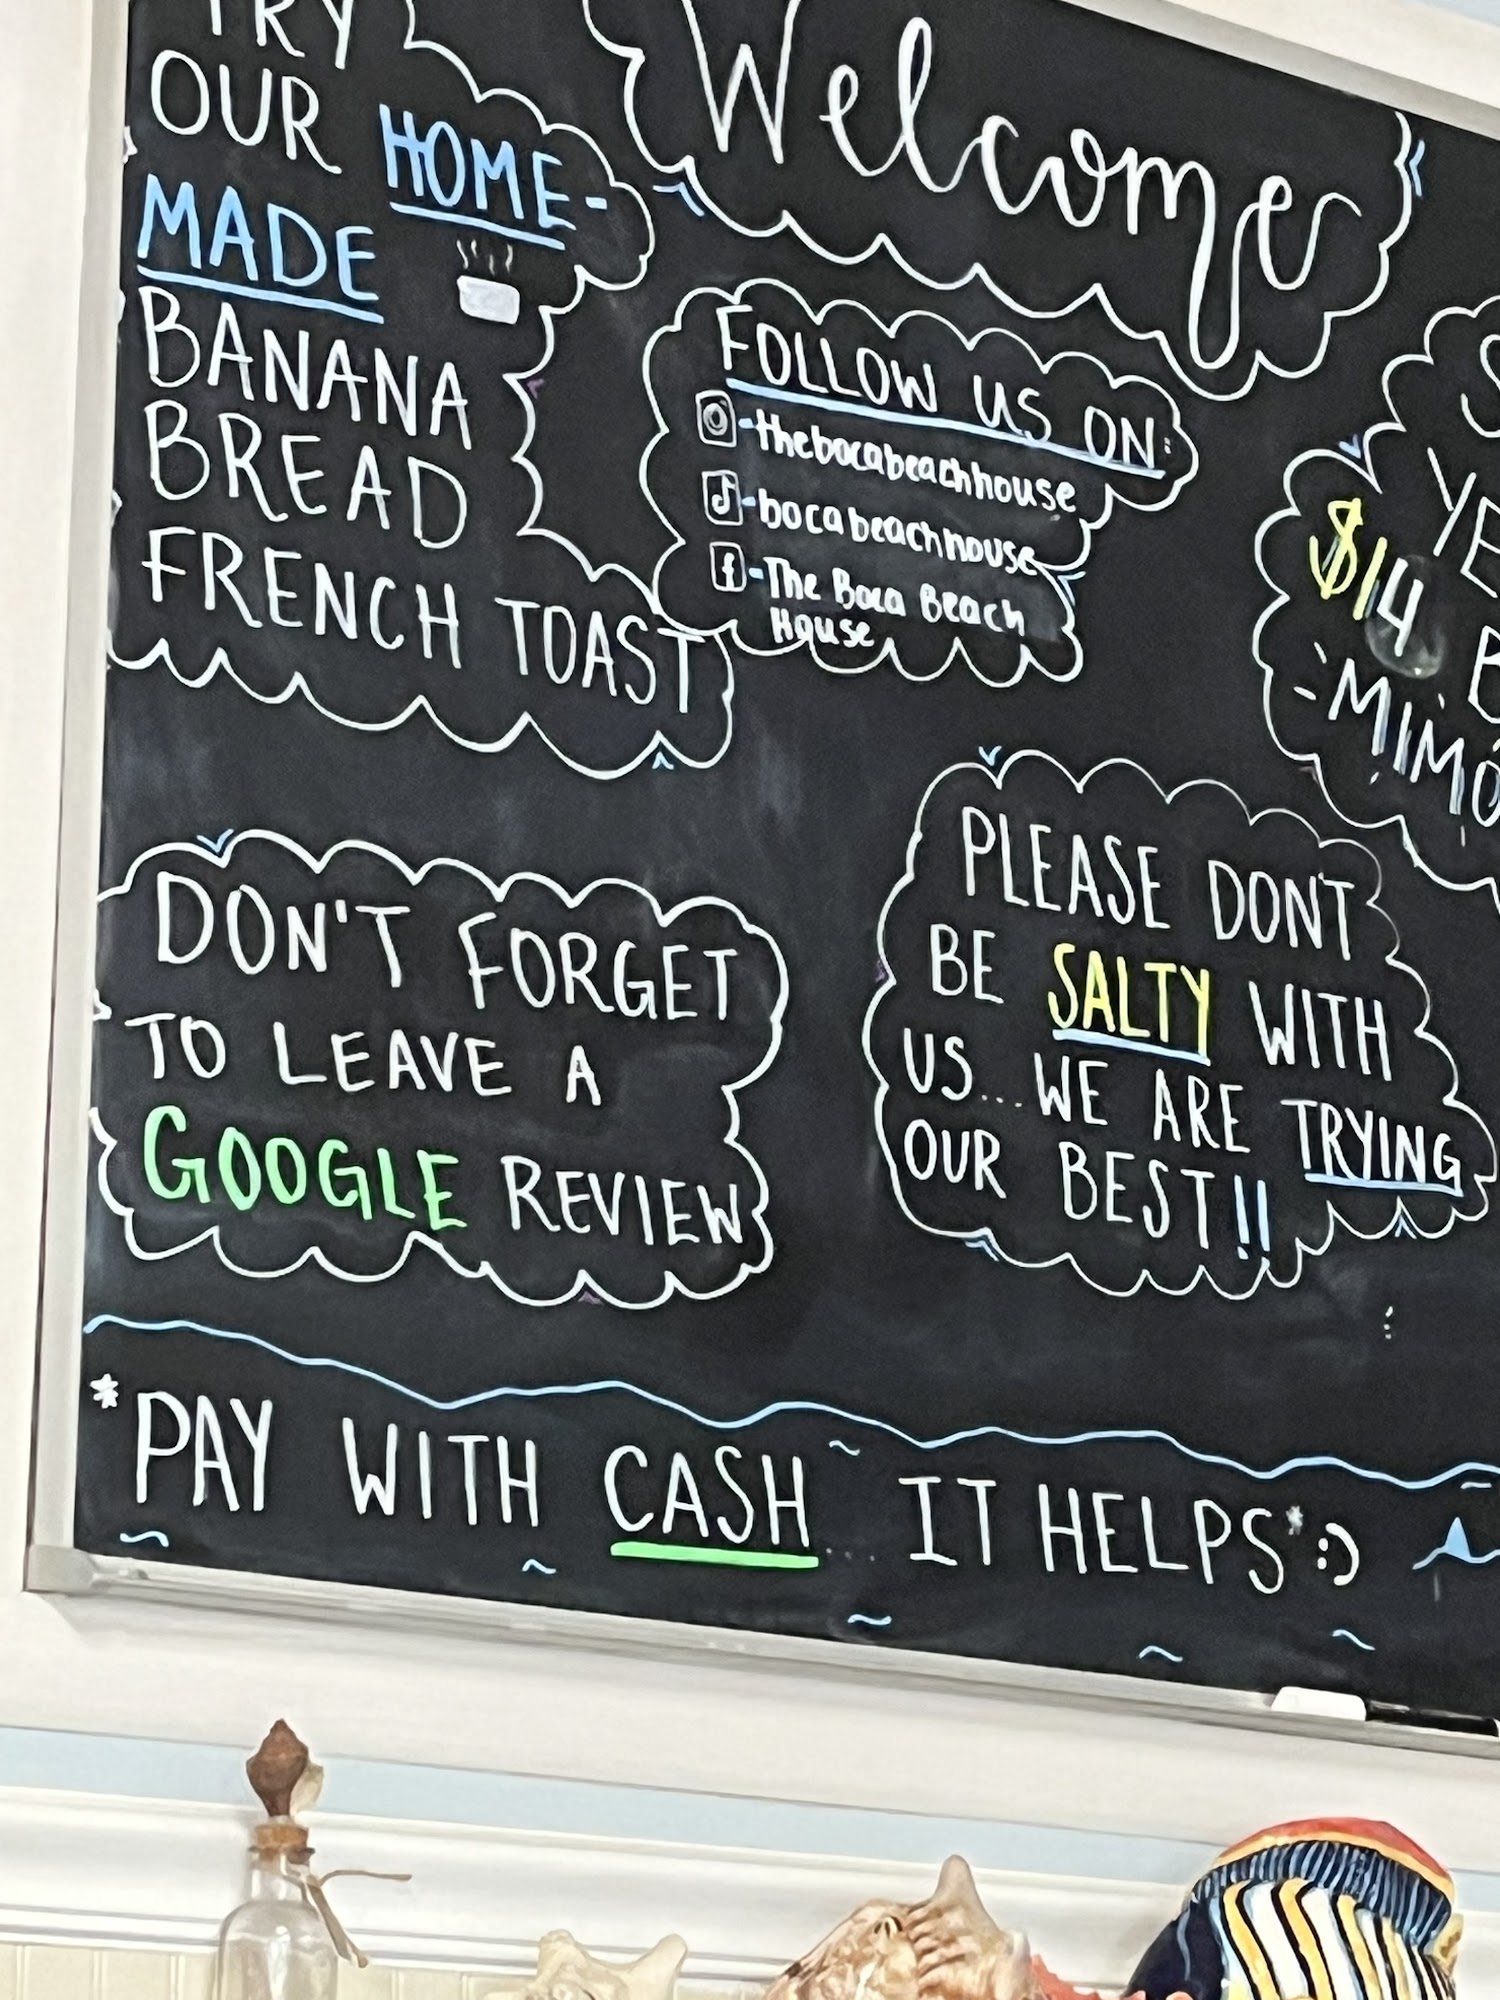 TRY
OUR HOME-
MADE
BANANA
BREAD
FRENCH TOAST
Welcome
FOLLOW US ON:
-thebocabeachhouse
-bocabeachhouse
-The Boca Beach
House
$14
DON'T FORGET
TO LEAVE A
GOOGLE REVIEW
PLEASE DONT
BE SALTY WITH
US... WE ARE TRYING
OUR BEST!!
*PAY WITH CASH... IT HELPS* :)